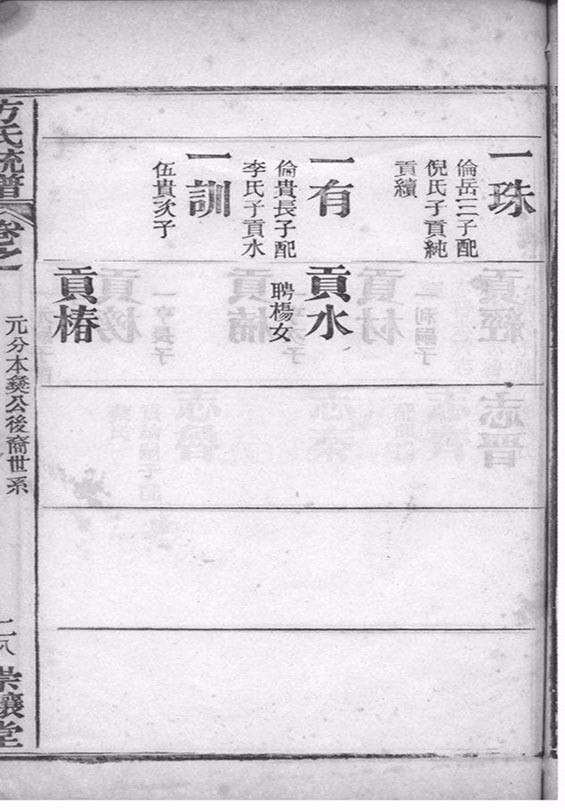 一珠
倫岳三子配
倪氏子貢純
貢續
一有
倫貴長子配
李氏子貢水
一訓
伍貴次子
貢水
聘楊女
貢椿
方氏統譜
卷之
元分本彜公後裔世系
二八